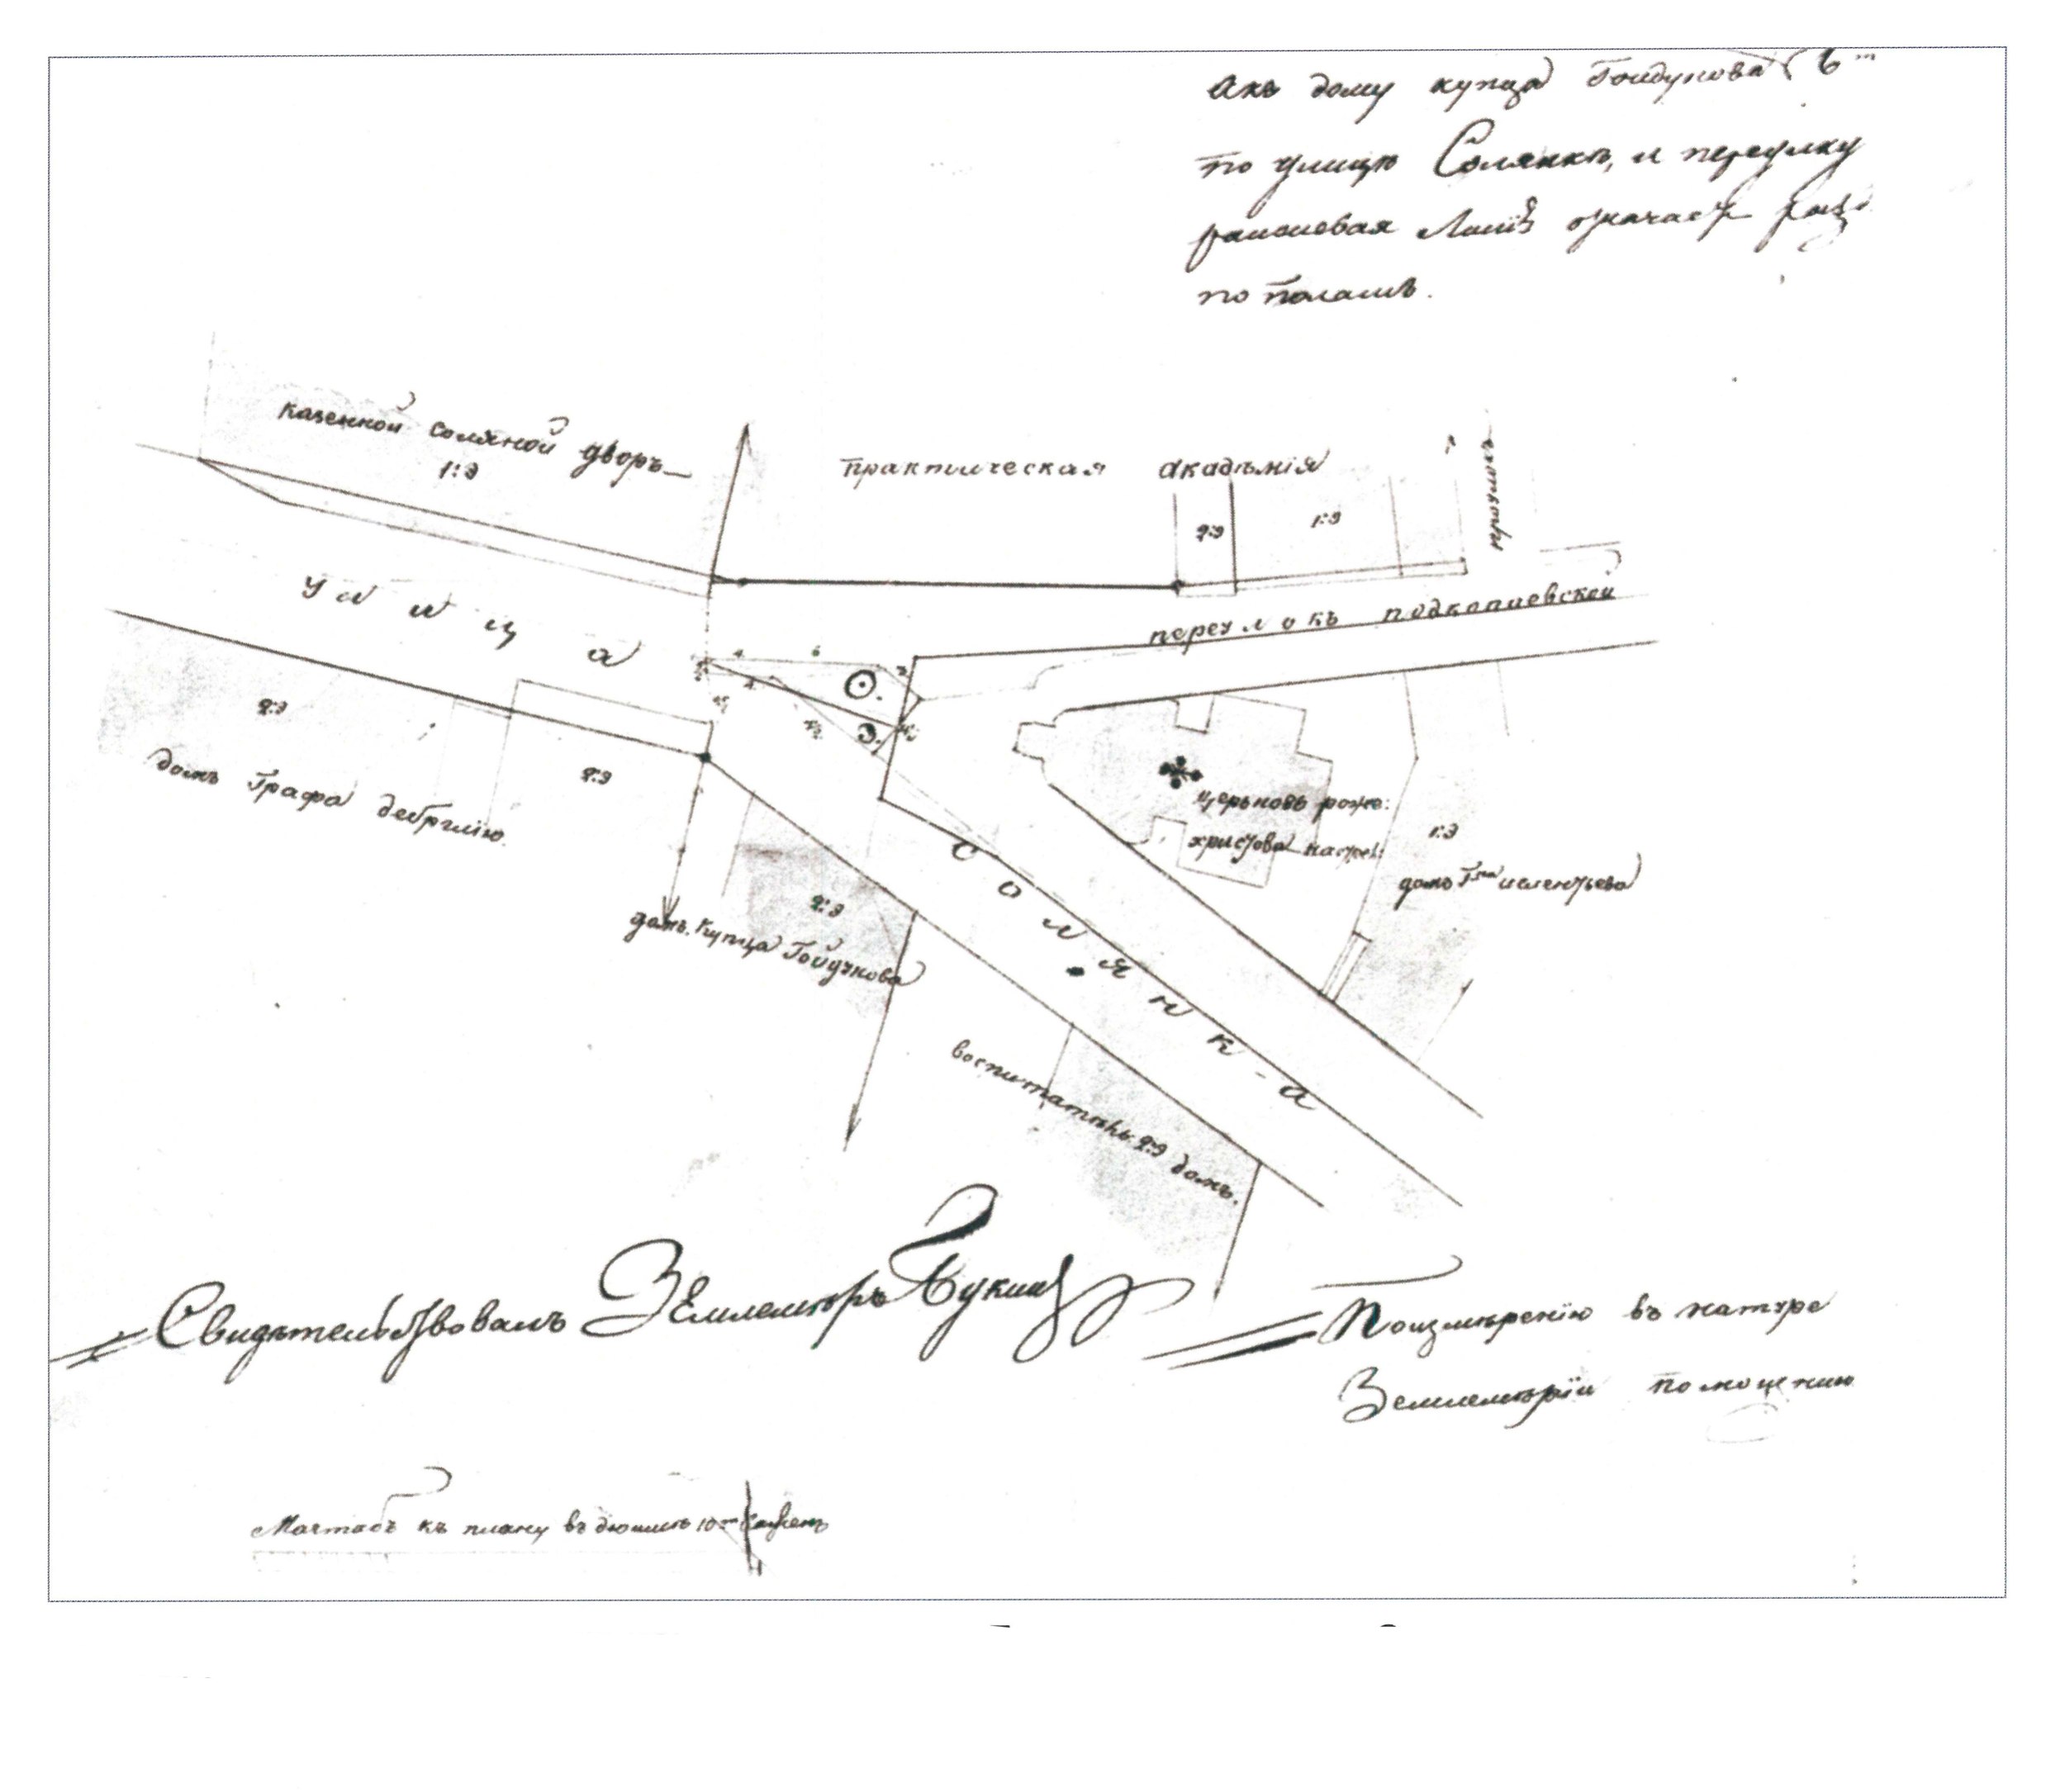 акъ дому купца Гойдукова 6
по улицѣ Солянкѣ, и переулку
рантовая Линія означаетъ
по поламъ.
казенной соляной дворъ
1:Э
практическая академія
2:Э
1:Э
проулокъ
улица
переулокъ подкопаевской
4 6
4
2:Э
домъ Графа дебрглію.
2:Э
церьковь роже:
христова настрел:
1:Э
домъ Г. мелентьева
2:Э
домъ купца Гойдукова
солянка
воспитатель. 2:Э домъ.
Свидѣтельствовалъ Землемѣръ Букинъ
Поизмѣренію въ натуре
Землемѣрїи помощнию
Мачтабъ къ плану въ дюймѣ 10 сажен